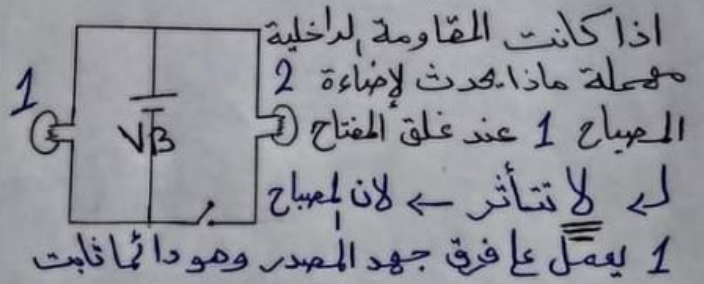 اذا كانت المقاومة الداخلية
مهملة ماذا يحدث لإضاءة
المصباح 1 عند غلق المفتاح
لا تتأثر ← لان المصباح
1 يعمل على فرق جهد المصدر وهو دائما ثابت
1
VB
2